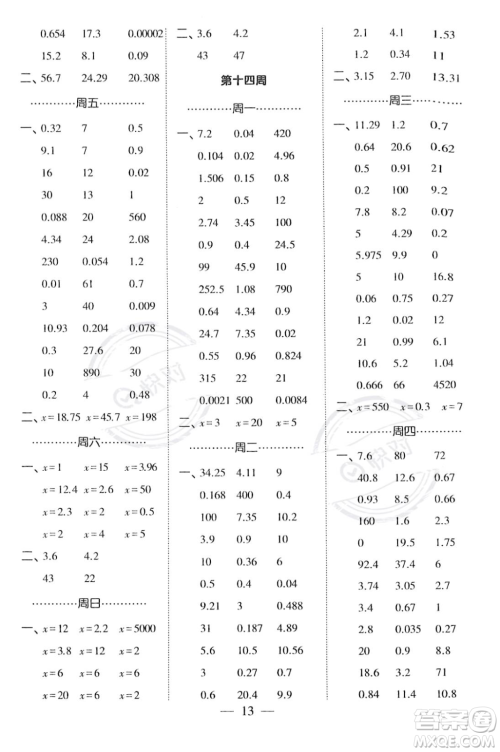 0.654 17.3 0.00002
15.2 8.1 0.09
二、56.7 24.29 20.308
周五
一、0.32 7 0.5
9.1 7 0.9
16 12 0.12
30 13 1
0.088 20 560
4.34 24 2.4
230 0.054 1.2
0.01 61 0.12
3 40 0.009
10.93 0.204 0.078
0.3 27.6 20
10 890 30
0.2 4 0.48
二、x=18.75 x=45.7 x=198
周六
一、x=1 x=15 x=3.96
x=12.4 x=2.6 x=12
x=2.3 x=2 x=2.5
x=2 x=4 x=5
二、3.6 4.2
43 22
周日
一、x=12 x=2.2 x=5000
x=3.8 x=12 x=2
x=6 x=6 x=6
x=20 x=6 x=2
二、3.6 4.2
43 47
第十四周
周一
一、7.2 0.04 420
0.104 0.02 4.96
1.506 0.15 0.8
2 0.5 12
2.74 3.45 100
0.9 0.4 24.5
99 45.9 10
252.5 1.08 790
6.4 0.06 32
900 1.8 0.04
9.1 0.1 0.375
315 22 21
0.0021 500 0.0084
二、x=3 x=20 x=5
周二
一、34.25 4.11 9
0.168 400 9
100 7.35 0.7
3.9 0.9 10
10 0.36 12
0.5 4 0.5
9.21 3 0.9
31 0.187 0.09
5.6 10.5 0.5
3 0.7 0.027
0.9 20.4 9.9
x=4.5 x=1.5 x=5.1
x=0.8 x=4 x=11
二、3.15 2.70 13.31
周三
一、11.29 1.2 0.7
0.64 20.6 0.62
0.5 0.91 21
0.2 100 0.09
7.8 8.2 0.07
5 4.29 0.9
5.975 0.9 9
5 10 16.8
0.06 12 2.75
1.25 0.45 0.51
9 0.8 0.35
0.666 0.66 4520
二、x=550 x=0.3 x=7
周四
一、7.6 80 72
40.8 12.6 0.96
0.93 8.5 0.15
160 1.6 2
0 0.04 20
92.4 37.4 0.36
3.74 3.74 0.34
2.8 0.035 0.27
0.27 0.09 0.01
18.66 0.4 0.09
7.74 0.57 0.34
13